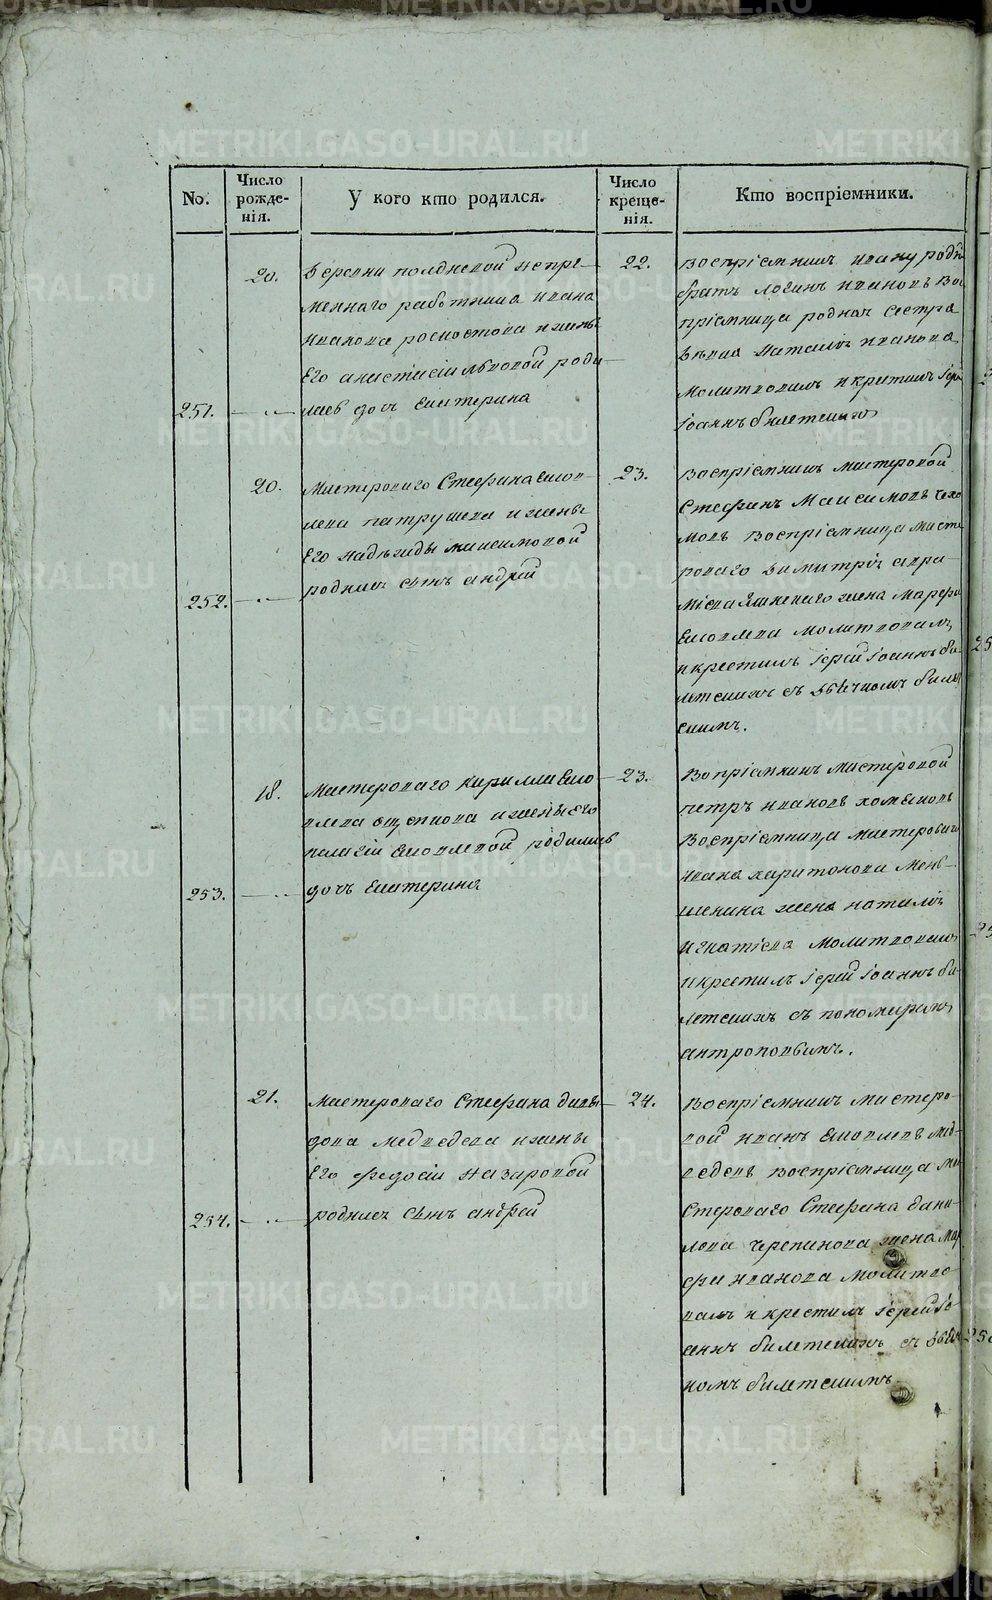 METRIKI.GASO-URAL.RU
No.
Число рожде-нія.
У кого кто родился.
Число креще-нія.
Кто воспріемники.
251.
20.
деревни полдневой непре-
меннаго работника ивана
иванова ростова и жены
Его анистасіи львовой роди
лась дочь Екатерина
22.
Воспріемникъ ивану родны
братъ логинъ ивановъ Вос
пріемница родная сестра
девка наталія иванова
Молитвовалъ и крестилъ іерей
іоаннъ билетскихъ
252.
20.
Мастероваго Стефана Яков
лева патрушева и жены
Его надежды максимовой
родился сынъ андрей
23.
Воспріемникъ мастеровой
Стефанъ Максимовъ чехо
мовъ воспріемница масте
роваго димитрія авра
міева жена марфа
Яковлева молитвовалъ
и крестилъ іерей іоаннъ би
летскихъ съ дьячкомъ билет
скимъ.
253.
18.
Мастероваго Кирилла Яко
влева ощепкова и жены Его
пелагіи Яковлевой родилась
дочь Екатерина
23.
Вопріемникъ мастеровой
петръ ивановъ хомяковъ
Воспріемница мастероваго
ивана харитонова мень-
шенина жена наталія
Игнатіева молитвовалъ
и крестилъ іерей іоаннъ би
летскихъ съ пономаремъ
антроповымъ.
254.
21.
Мастероваго Стефана давы
дова медведева и жены
Его федосіи назаровой
родился сынъ андрей
24.
Воспріемникъ мастеро-
вой иванъ Яковлевъ мед-
ведевъ воспріемница ма
стероваго Стефана дани-
лова черепанова жена мар
фа иванова молитво
валъ и крестилъ іерей іо
аннъ билетскихъ съ дьяч
комъ билетскимъ